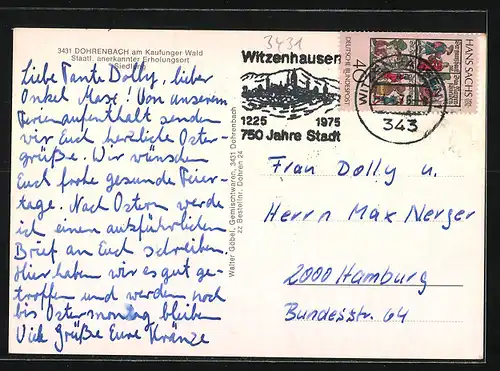 3431 DOHRENBACH am Kaufunger Wald
Staatl. anerkannter Erholungsort
(Siedlern)
Liebe Tante Dolly, lieber
Onkel Maxe! Von unserem
Ferienaufenthalt senden
wir Euch herzliche Oster-
grüße. Wir wünschen
Euch frohe gesunde Feier-
tage. Nach Ostern werde
ich einen ausführlichen
Brief an Euch schreiben.
Hier haben wir es gut ge-
troffen und werden noch
bis Ostermontag bleiben
Viele Grüße Eure Kränze
Walter Göbel, Gemischtwaren, 3431 Dohrenbach
zz Bestellnr. Dohren 24
3431
Witzenhausen
1225 1975
750 Jahre Stadt
DEUTSCHE BUNDESPOST
40
HANS SACHS
WITZENHAUSEN 1
343
Frau Dolly u.
Herrn Max Nerger
2000 Hamburg
Bundesstr. 64